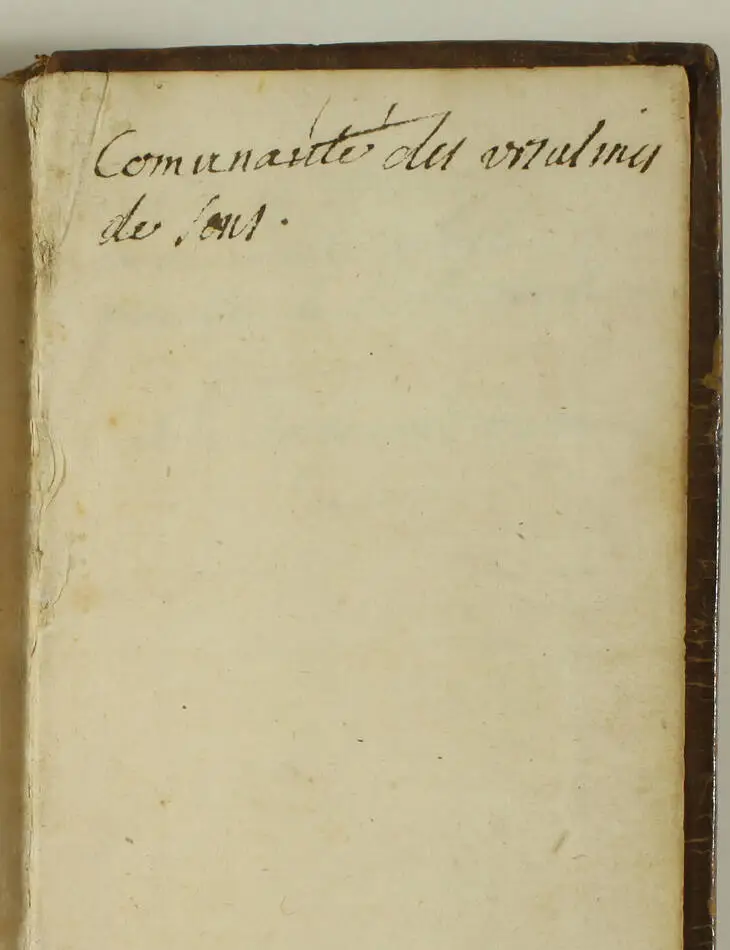 Comunauté des vrsulines
de Sens.